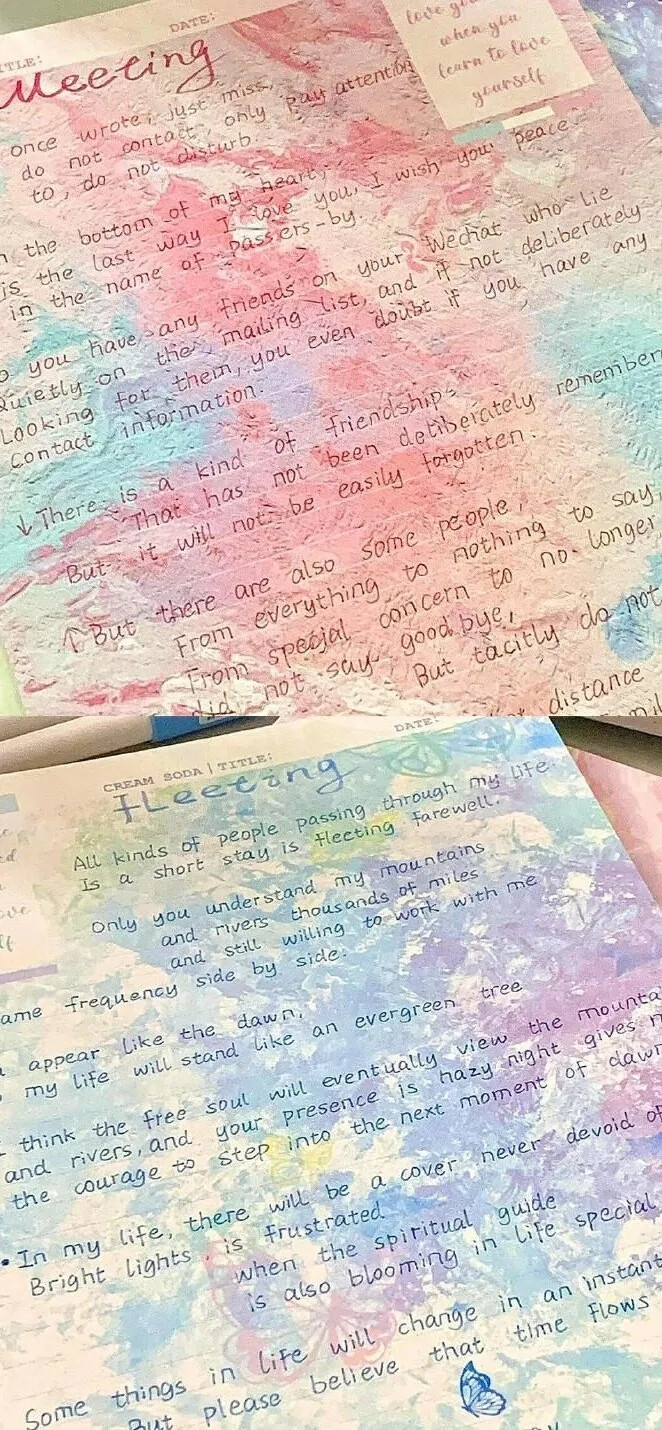 TITLE:
DATE:
Meeting
love yo
when you
learn to love
yourself
once wrote, just miss,
do not contact, only pay attention
to, do not disturb
the bottom of my heart,
is the last way I love you, I wish you peace
in the name of passers-by.
you have any friends on your Wechat who lie
Quietly on the mailing list, and if not deliberately
Looking for them, you even doubt if you have any
contact information.
↓There is a kind of friendship
That has not been deliberately remember
But it will not be easily forgotten.
↑But there are also some people,
From everything to nothing to say
From special concern to no longer
did not say goodbye,
But tacitly do not
distance
DATE:
CREAM SODA | TITLE:
fleeting
All kinds of people passing through my life.
Is a short stay is flecting farewell.
Only you understand my mountains
and rivers thousands of miles
and still willing to work with me
ame frequency side by side.
appear like the dawn,
my life will stand like an evergreen tree
think the free soul will eventually view the mounta
and rivers, and your presence is hazy night gives m
the courage to step into the next moment of dawn
•In my life, there will be a cover never devoid of
Bright lights, is frustrated
when the spiritual guide
is also blooming in life special
Some things in life will change in an instant
But please believe that time flows